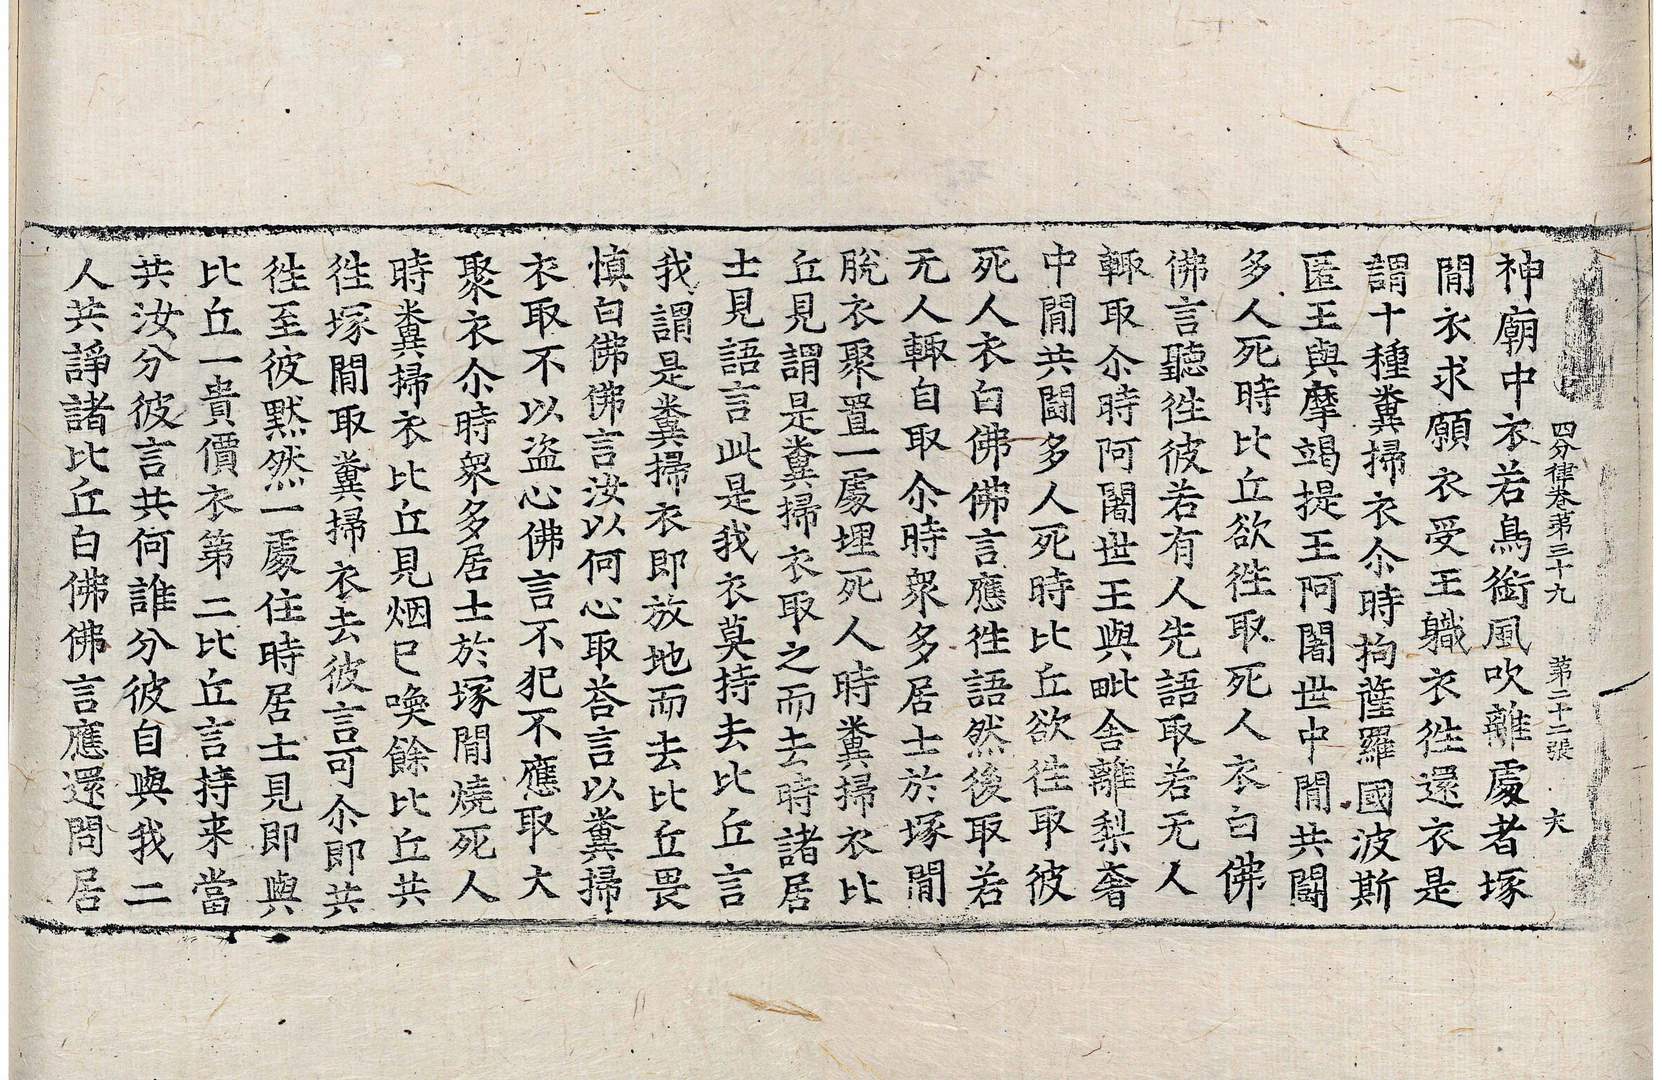 四分律卷第三十九 第二十二張 𡗗
神廟中衣若鳥銜風吹離處者塚
間衣求願衣受王職衣徃還衣是
謂十種糞掃衣尒時拘薩羅國波斯
匿王與摩竭提王阿闍世中間共鬪
多人死時比丘欲徃取死人衣白佛
佛言聽徃彼若有人先語取若无人
輙取尒時阿闍世王與毗舍離梨奢
中間共鬪多人死時比丘欲徃取彼
死人衣白佛佛言應徃語然後取若
无人輙自取尒時衆多居士於塚間
脫衣聚置一處埋死人時糞掃衣比
丘見謂是糞掃衣取之而去時諸居
士見語言此是我衣莫持去比丘言
我謂是糞掃衣即放地而去比丘畏
慎白佛佛言汝以何心取荅言以糞掃
衣取不以盜心佛言不犯不應取大
聚衣尒時衆多居士於塚間燒死人
時糞掃衣比丘見烟已喚餘比丘共
徃塚間取糞掃衣去彼言可尒即共
徃至彼黙然一處住時居士見即與
比丘一貴價衣第二比丘言持来當
共汝分彼言共何誰分彼自與我二
人共諍諸比丘白佛佛言應還問居